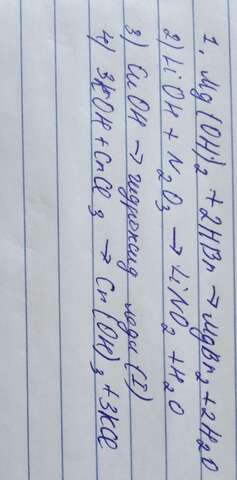 1. Mg(OH)2 + 2HBr → MgBr2 + 2H2O
2) LiOH + N2O3 → LiNO2 + H2O
3) CuOH → гидроксид меди (I)
4) 3KOH + CrCl3 → Cr(OH)3 + 3KCl